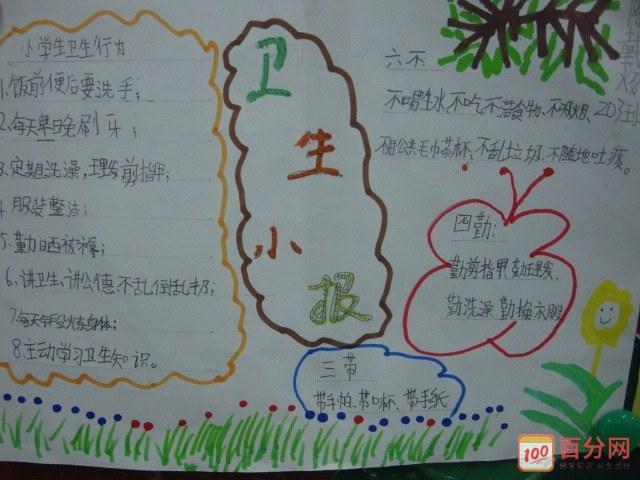 小学生卫生行为
1.饭前便后要洗手；
2.每天早晚刷牙；
3.定期洗澡，理发剪指甲；
4.服装整洁；
5.勤晒被褥；
6.讲卫生、讲公德、不乱倒乱扔；
7.每天锻炼身体；
8.主动学习卫生知识。
卫
生
小
报
三带
带手帕、带口杯、带手纸
六不
不喝生水、不吃不洁食物、不吸烟、
不用公共毛巾茶杯、不乱垃圾、不随地吐痰。
四勤：
勤剪指甲、勤理发、
勤洗澡 勤换衣服
百分网